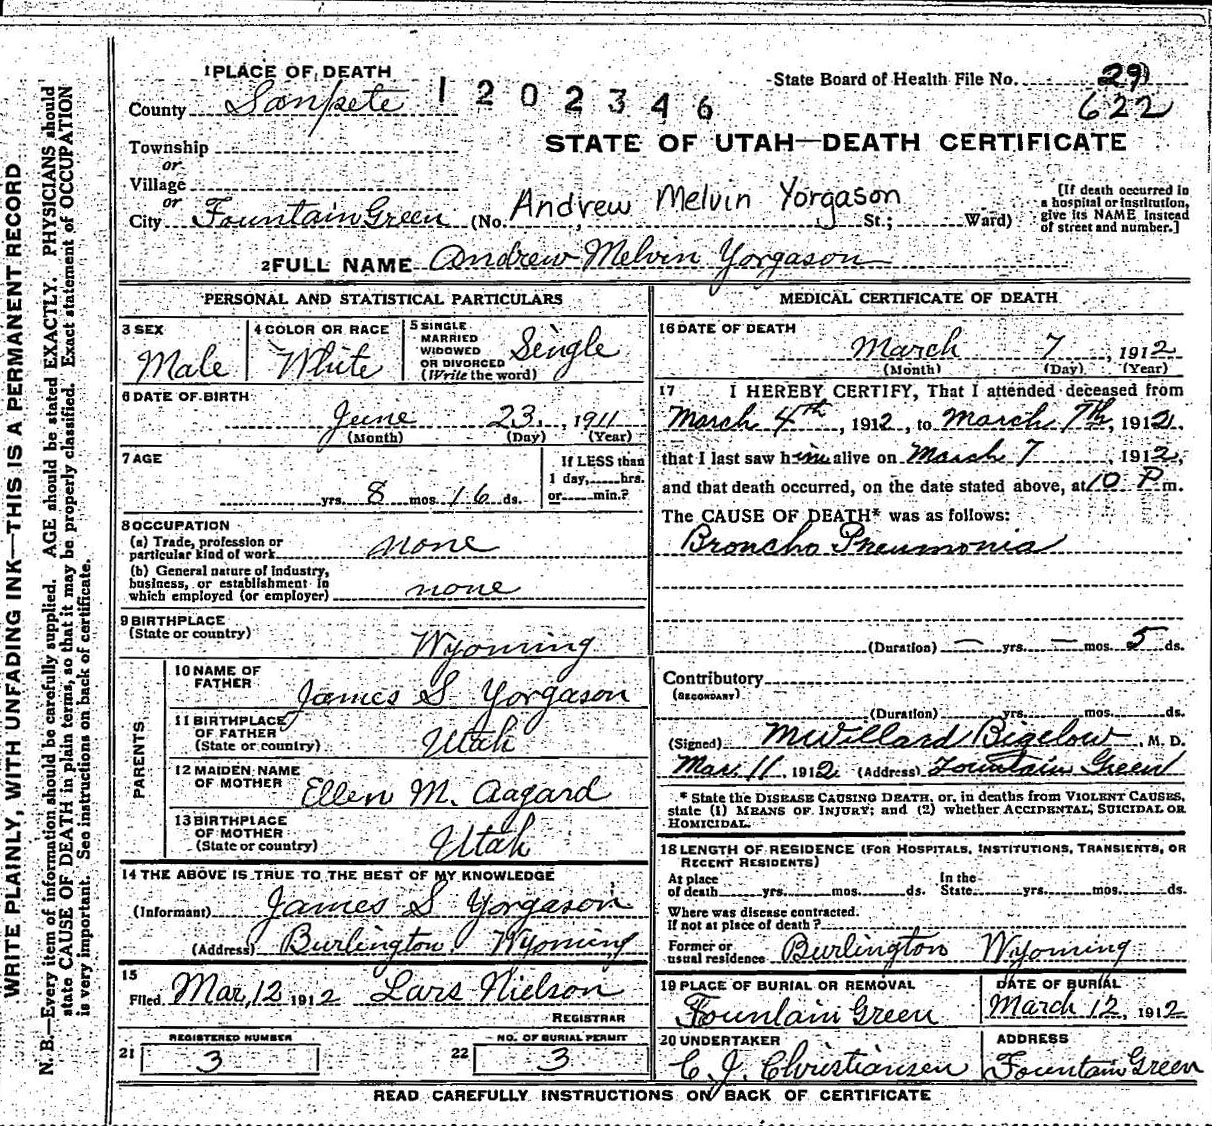 WRITE PLAINLY, WITH UNFADING INK—THIS IS A PERMANENT RECORD
N. B.—Every item of information should be carefully supplied. AGE should be stated EXACTLY. PHYSICIANS should
state CAUSE OF DEATH in plain terms, so that it may be properly classified. Exact statement of OCCUPATION
is very important. See instructions on back of certificate.
1 PLACE OF DEATH
County Sanpete
1 2 0 2 3 4 6
State Board of Health File No. 29
622
STATE OF UTAH—DEATH CERTIFICATE
Township
or
Village
or
City Fountain Green (No. Andrew Melvin Yorgason St.; Ward)
[If death occurred in
a hospital or institution,
give its NAME instead
of street and number.]
2 FULL NAME Andrew Melvin Yorgason
PERSONAL AND STATISTICAL PARTICULARS
3 SEX
Male
4 COLOR OR RACE
White
5 SINGLE
MARRIED
WIDOWED
OR DIVORCED
(Write the word)
Single
6 DATE OF BIRTH
June 23, 1911
(Month) (Day) (Year)
7 AGE
yrs. 8 mos. 16 ds.
If LESS than
1 day, hrs.
or min.?
8 OCCUPATION
(a) Trade, profession or
particular kind of work none
(b) General nature of industry,
business, or establishment in
which employed (or employer) none
9 BIRTHPLACE
(State or country) Wyoming
PARENTS
10 NAME OF
FATHER James S Yorgason
11 BIRTHPLACE
OF FATHER
(State or country) Utah
12 MAIDEN NAME
OF MOTHER Ellen M. Aagard
13 BIRTHPLACE
OF MOTHER
(State or country) Utah
14 THE ABOVE IS TRUE TO THE BEST OF MY KNOWLEDGE
(Informant) James S Yorgason
(Address) Burlington Wyoming
15
Filed Mar, 12 1912 Lars Nielson
REGISTRAR
REGISTERED NUMBER
21 3
NO. OF BURIAL PERMIT
22 3
MEDICAL CERTIFICATE OF DEATH
16 DATE OF DEATH
March 7, 1912
(Month) (Day) (Year)
17 I HEREBY CERTIFY, That I attended deceased from
March 4th, 1912, to March 7th, 1912,
that I last saw him alive on March 7, 1912,
and that death occurred, on the date stated above, at 10 P m.
The CAUSE OF DEATH* was as follows:
Broncho Pneumonia
(Duration) — yrs. — mos. 5 ds.
Contributory
(SECONDARY)
(Duration) yrs. mos. ds.
(Signed) M Willard Bigelow, M. D.
Mar. 11, 1912 (Address) Fountain Green
* State the DISEASE CAUSING DEATH, or, in deaths from VIOLENT CAUSES,
state (1) MEANS OF INJURY; and (2) whether ACCIDENTAL, SUICIDAL OR
HOMICIDAL.
18 LENGTH OF RESIDENCE (FOR HOSPITALS, INSTITUTIONS, TRANSIENTS, OR
RECENT RESIDENTS)
At place
of death yrs. mos. ds.
In the
State yrs. mos. ds.
Where was disease contracted.
If not at place of death?
Former or
usual residence Burlington Wyoming
19 PLACE OF BURIAL OR REMOVAL
Fountain Green
DATE OF BURIAL
March 12, 1912
20 UNDERTAKER
C. J. Christiansen
ADDRESS
Fountain Green
READ CAREFULLY INSTRUCTIONS ON BACK OF CERTIFICATE